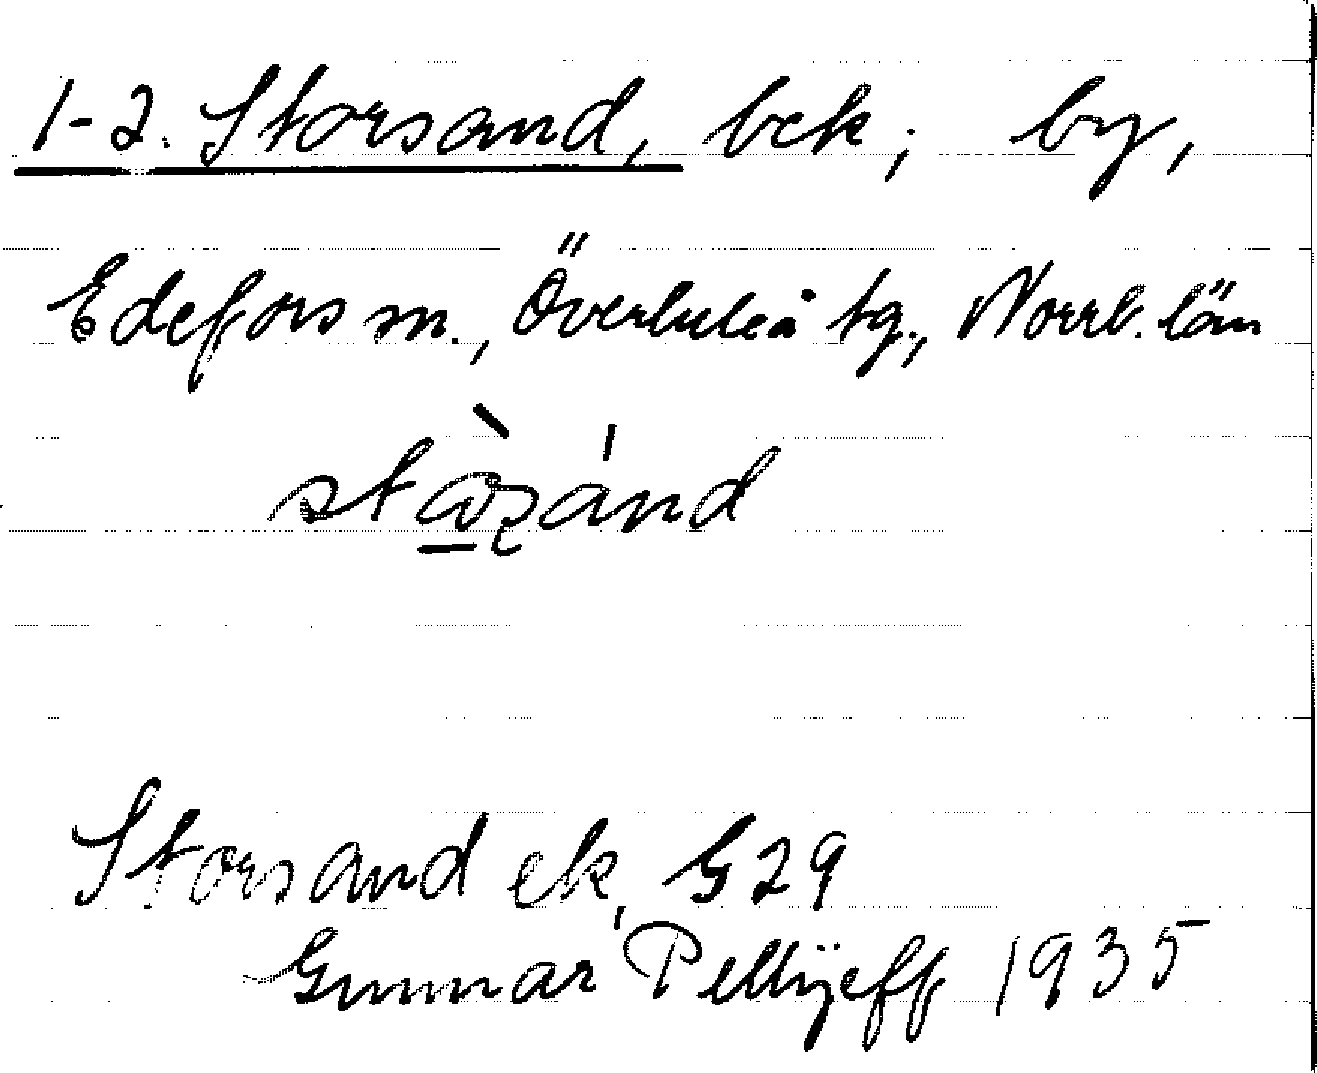 1-2. Storsand, bck; by,
Edefors sn., Överluleå tg., Norrb. län
Storsand ek, G29
Gunnar Pellijeff 1935